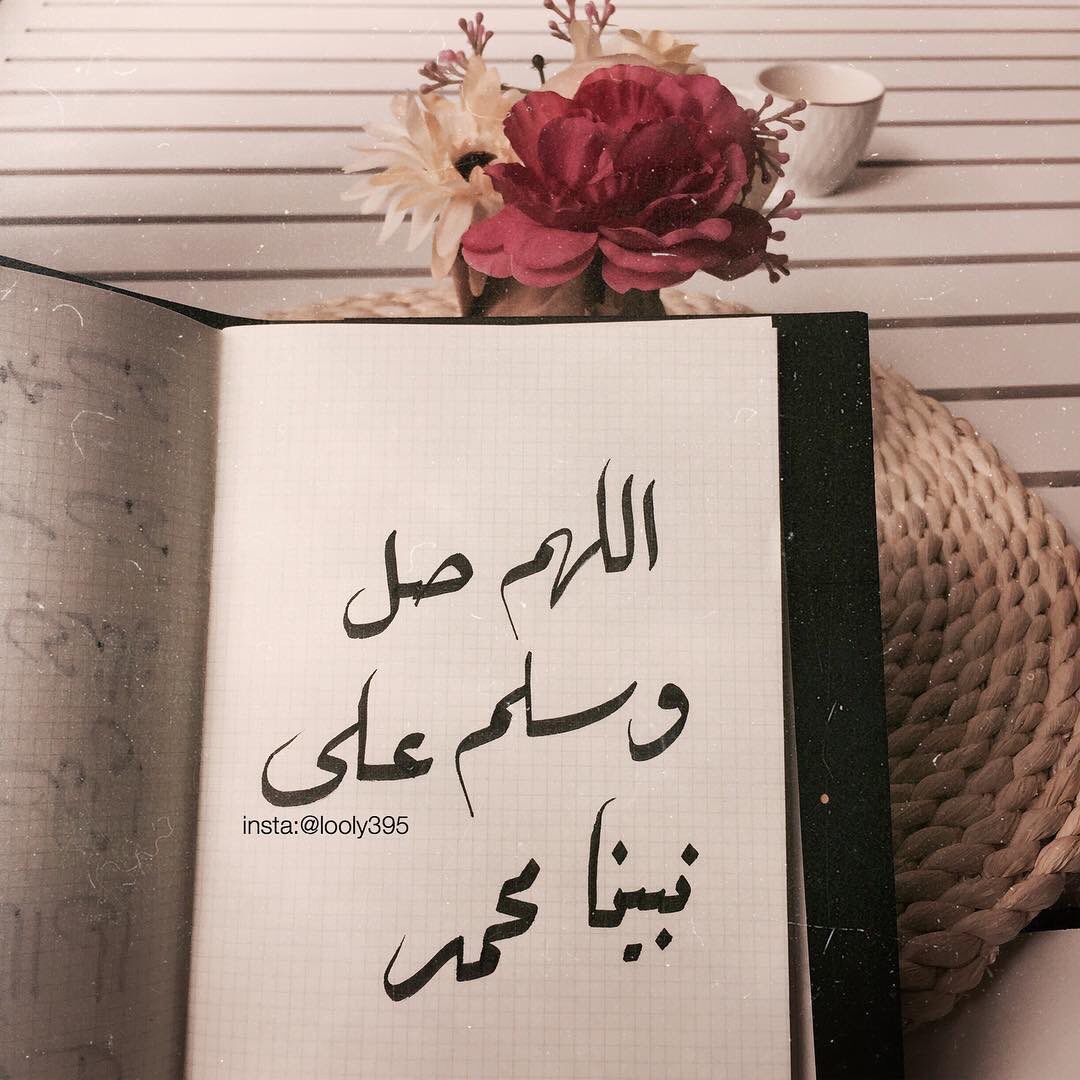 اللهم صل
وسلم على
insta:@looly395
نبينا محمد